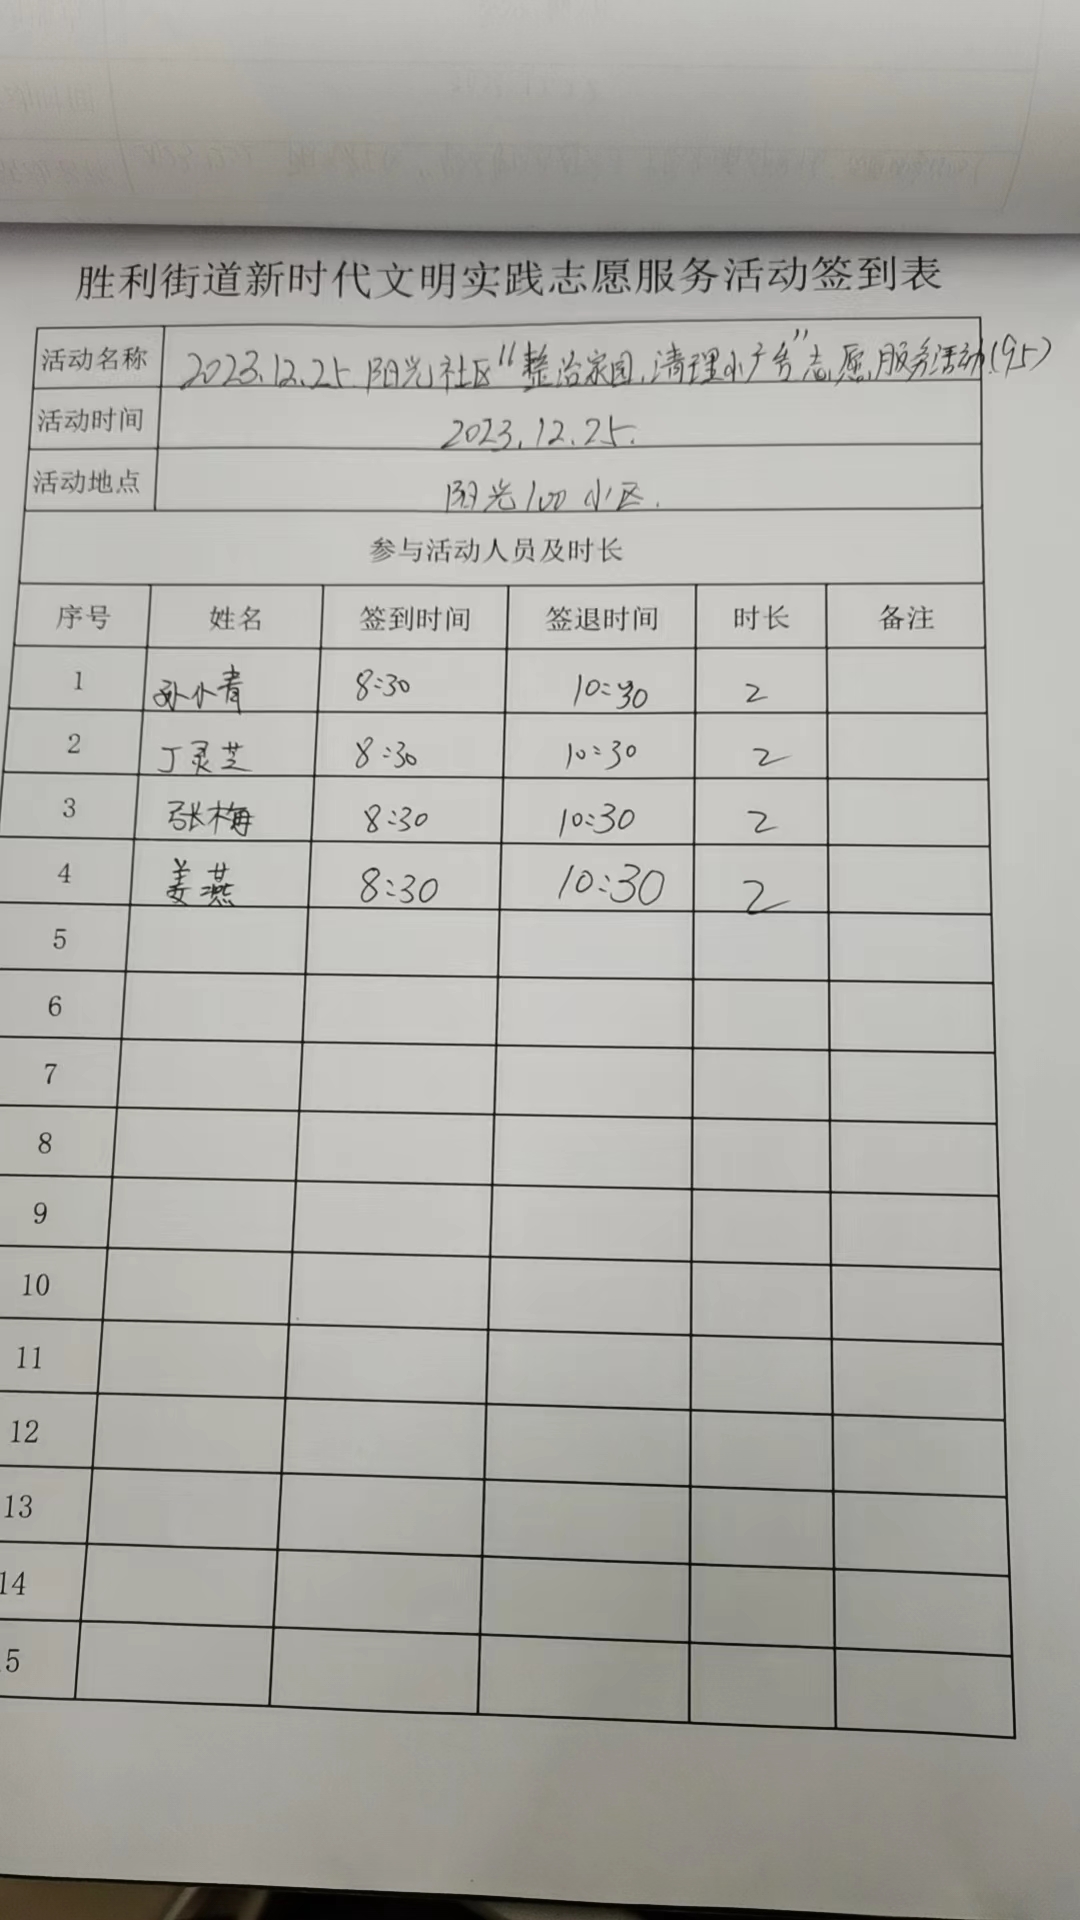 胜利街道新时代文明实践志愿服务活动签到表
活动名称 2023.12.25.阳光社区"整治家园,清理小广告"志愿服务活动(95)
活动时间 2023.12.25.
活动地点 阳光100小区.
参与活动人员及时长
序号 姓名 签到时间 签退时间 时长 备注
1 孙小青 8:30 10:30 2
2 丁灵芝 8:30 10:30 2
3 张梅 8:30 10:30 2
4 姜燕 8:30 10:30 2
5
6
7
8
9
10
11
12
13
14
5